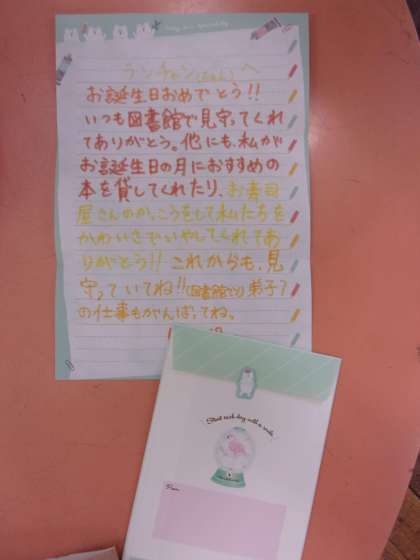 ランチャン(さん)へ
お誕生日おめでとう!!
いつも図書館で見守ってくれ
てありがとう。他にも、私が
お誕生日の月におすすめの
本を貸してくれたり、お寿司
屋さんのかっこうをして私たちを
かわいさでいやしてくれてあ
りがとう!! これからも、見
守っていてね!!(図書館で)弟子7
の仕事もがんばってね。
Start each day with a smile.
From